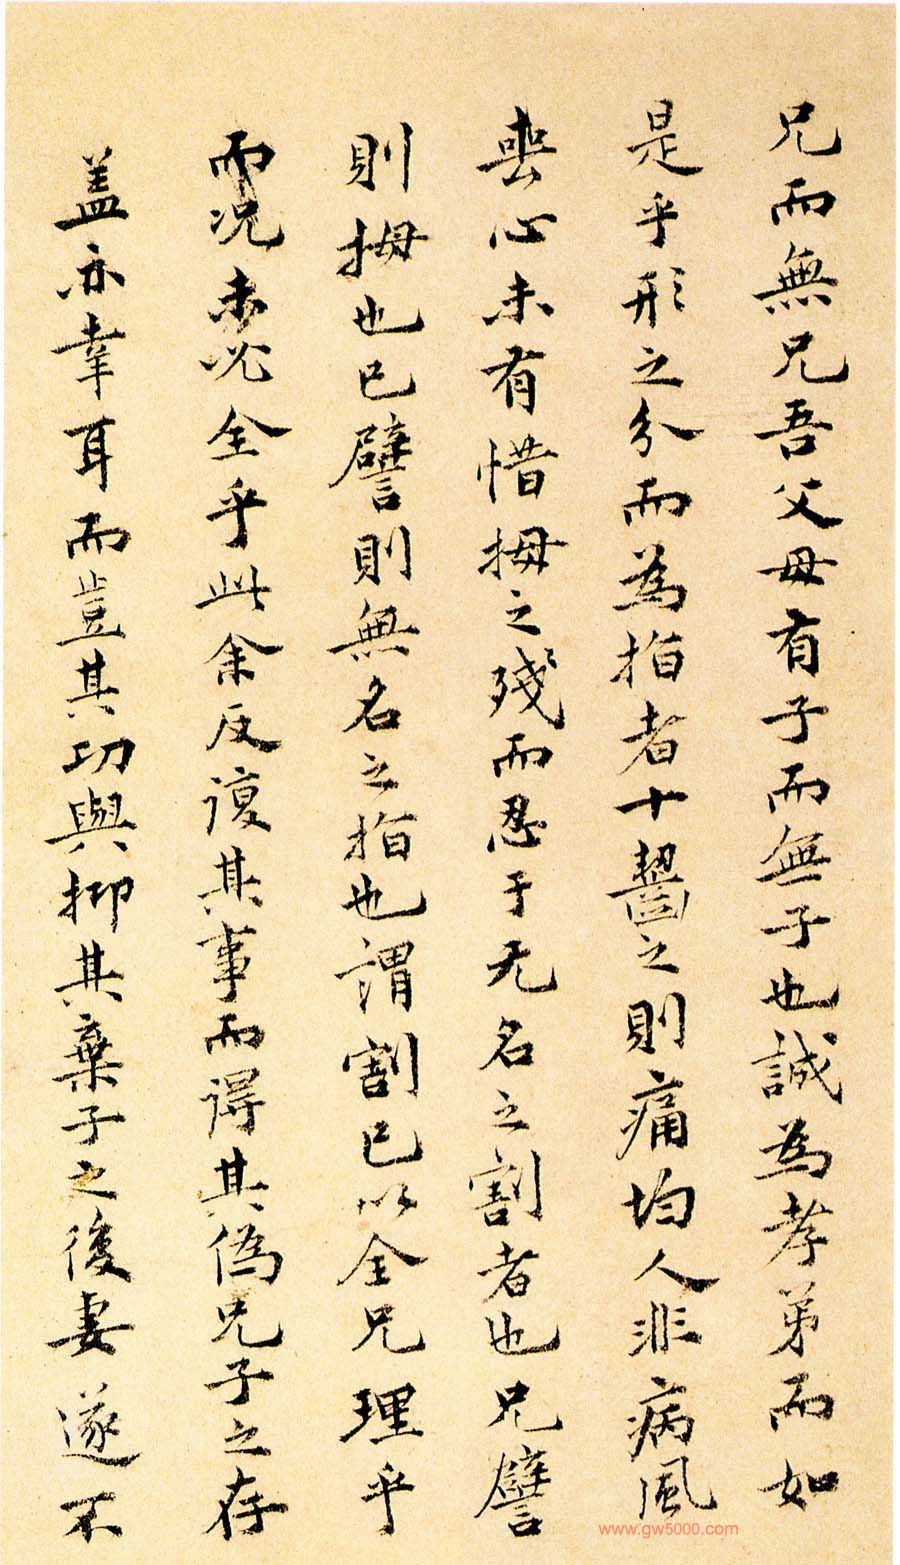 兄而無兄吾父母有子而無子也誠為孝弟而如
是乎形之分而為指者十齧之則痛均人非病風
喪心未有惜拇之殘而忍于无名之割者也兄譬
則拇也已譬則無名之指也謂割已以全兄理乎
而况未必全乎此余反復其事而得其偽兄子之存
盖亦幸耳而豈其功與抑其棄子之後妻遂不
www.gw5000.com